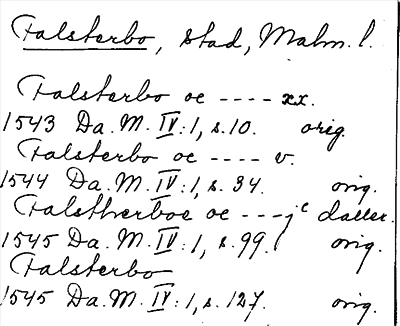 Falsterbo, stad, Malm. l.
Falsterbo oc ---- xx.
1543 Da. M. IV: 1, s. 10. orig.
Falsterbo oc ---- v.
1544 Da. M. IV: 1, s. 34. orig.
Falstherboe oc --- jc daller.
1545 Da. M. IV: 1, s. 99. orig.
Falsterbo
1545 Da. M. IV: 1, s. 127. orig.